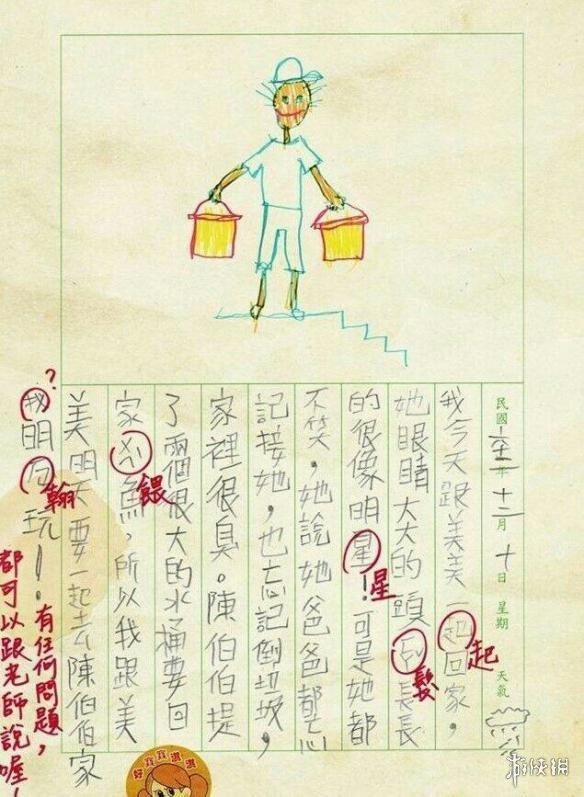 民國 年 十二月 十日 星期 天氣
我今天跟美美一起回家，
起
她眼睛大大的頭長長
髮
的很像明星！可是她都
星
不笑，她說她爸爸都忘
記接她，也忘記倒垃圾，
家裡很臭。陳伯伯提
了兩個很大的水桶要回
家魚，所以我跟美
餵
美明天要一起去陳伯伯家
?
我明玩！
翰
有任何問題，
都可以跟老師說喔！
好寶寶淇淇
游侠网